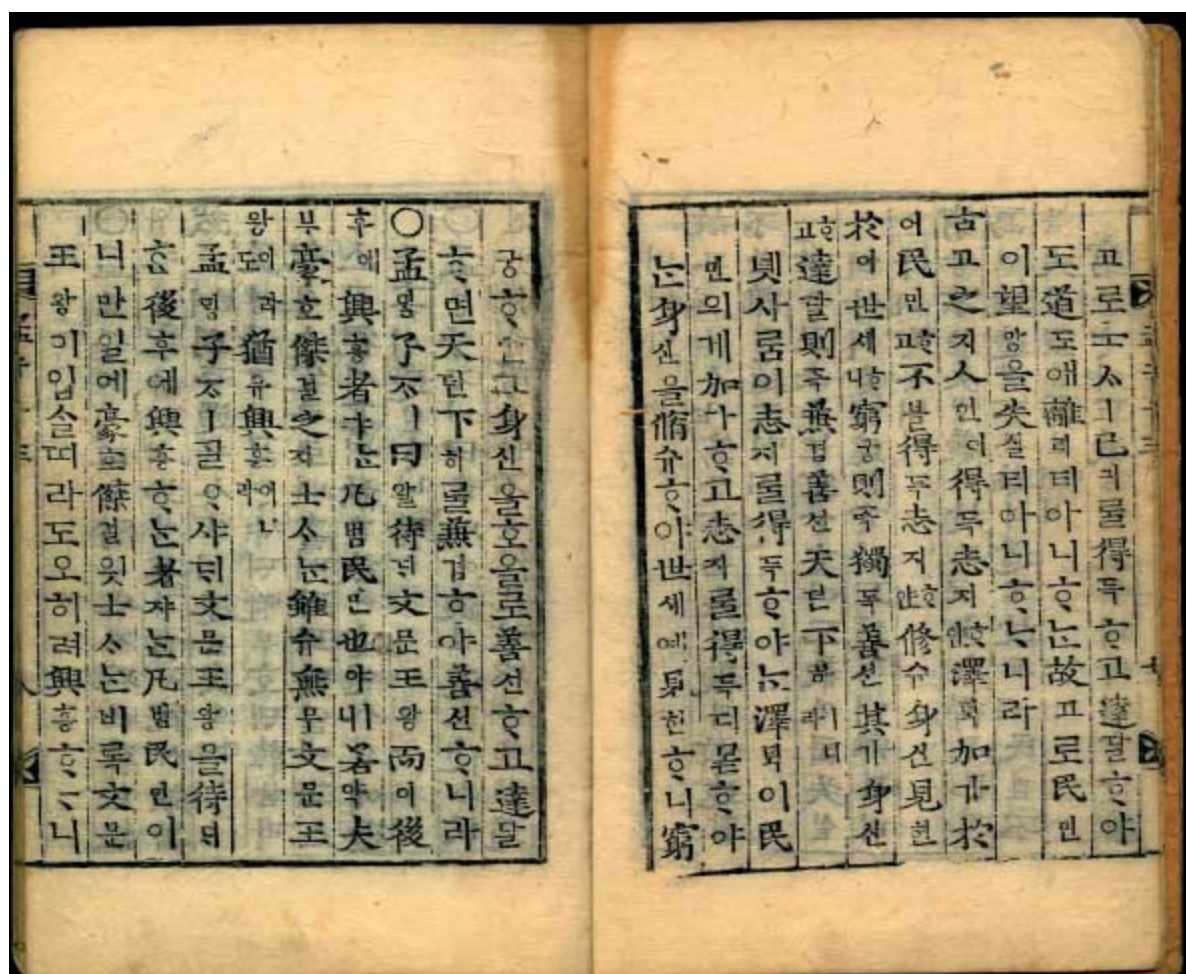 고로士ᄉㅣ己긔ᄅᆞᆯ得득ᄒᆞ고達달ᄒᆞ야
도道도애離리티아니ᄒᆞᄂᆞᆫ故고로民민
이望망을失실티아니ᄒᆞᄂᆞ니라
古고之지人인이得득志지ᄒᆞ얀澤ᄐᆡᆨ加가於
어民민ᄒᆞ고不블得득志지ᄒᆞ얀修슈身신見현
於어世셰ᄒᆞ니窮궁則즉獨독善션其기身신
ᄒᆞ고達달則즉兼겸善션天텬下하ㅣ니라
녯사ᄅᆞᆷ이志지ᄅᆞᆯ得득ᄒᆞ야ᄂᆞᆫ澤ᄐᆡᆨ이民
민의게加가ᄒᆞ고志지ᄅᆞᆯ得득디몯ᄒᆞ야
ᄂᆞᆫ身신을脩슈ᄒᆞ야世셰예見현ᄒᆞ니窮
궁ᄒᆞ身신을호올로善션ᄒᆞ고達달
ᄒᆞ면天텬下하ᄅᆞᆯ兼겸ᄒᆞ야善션ᄒᆞ니라
○孟ᄆᆡᆼ子ᄌᆞㅣ曰왈待ᄃᆡ文문王왕而이後
후에興흥者쟈ᄂᆞᆫ凡범民민也야ㅣ니若약夫
부豪호傑걸之지士ᄉᆞᄂᆞᆫ雖슈無무文문王
왕이라도猶유興흥이니라
孟ᄆᆡᆼ子ᄌᆞㅣᄀᆞᆯᄋᆞ샤ᄃᆡ文문王왕을待ᄃᆡ
ᄒᆞᆫ後후에興흥ᄒᆞᄂᆞᆫ者쟈ᄂᆞᆫ凡범民민이
니만일에豪호傑걸읫士ᄉᆞᄂᆞᆫ비록文문
王왕이업슬띠라도오히려興흥ᄒᆞᄂᆞ니